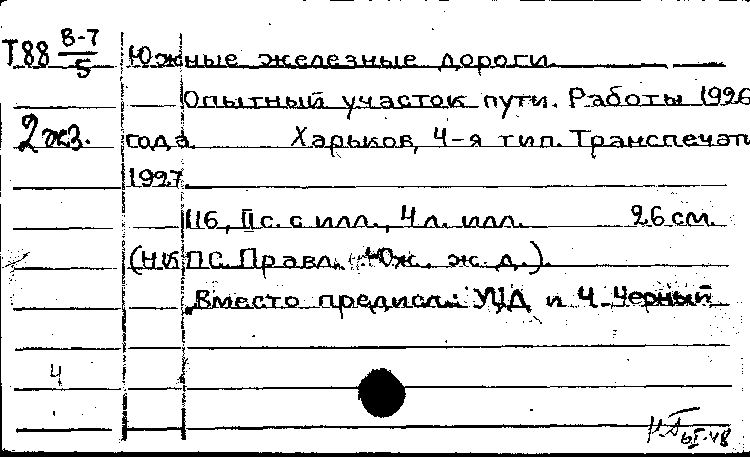 Т88 В-7/5 Южные железные дороги.
Опытный участок пути. Работы 1926
2 экз. года. Харьков, 4-я тип. Транспечати
1927
116, II с. с илл., 4 л. илл. 26 см.
(НКПС. Правл. Юж. ж. д.).
Вместо предисл.: УЧД и Ч. Черный
4